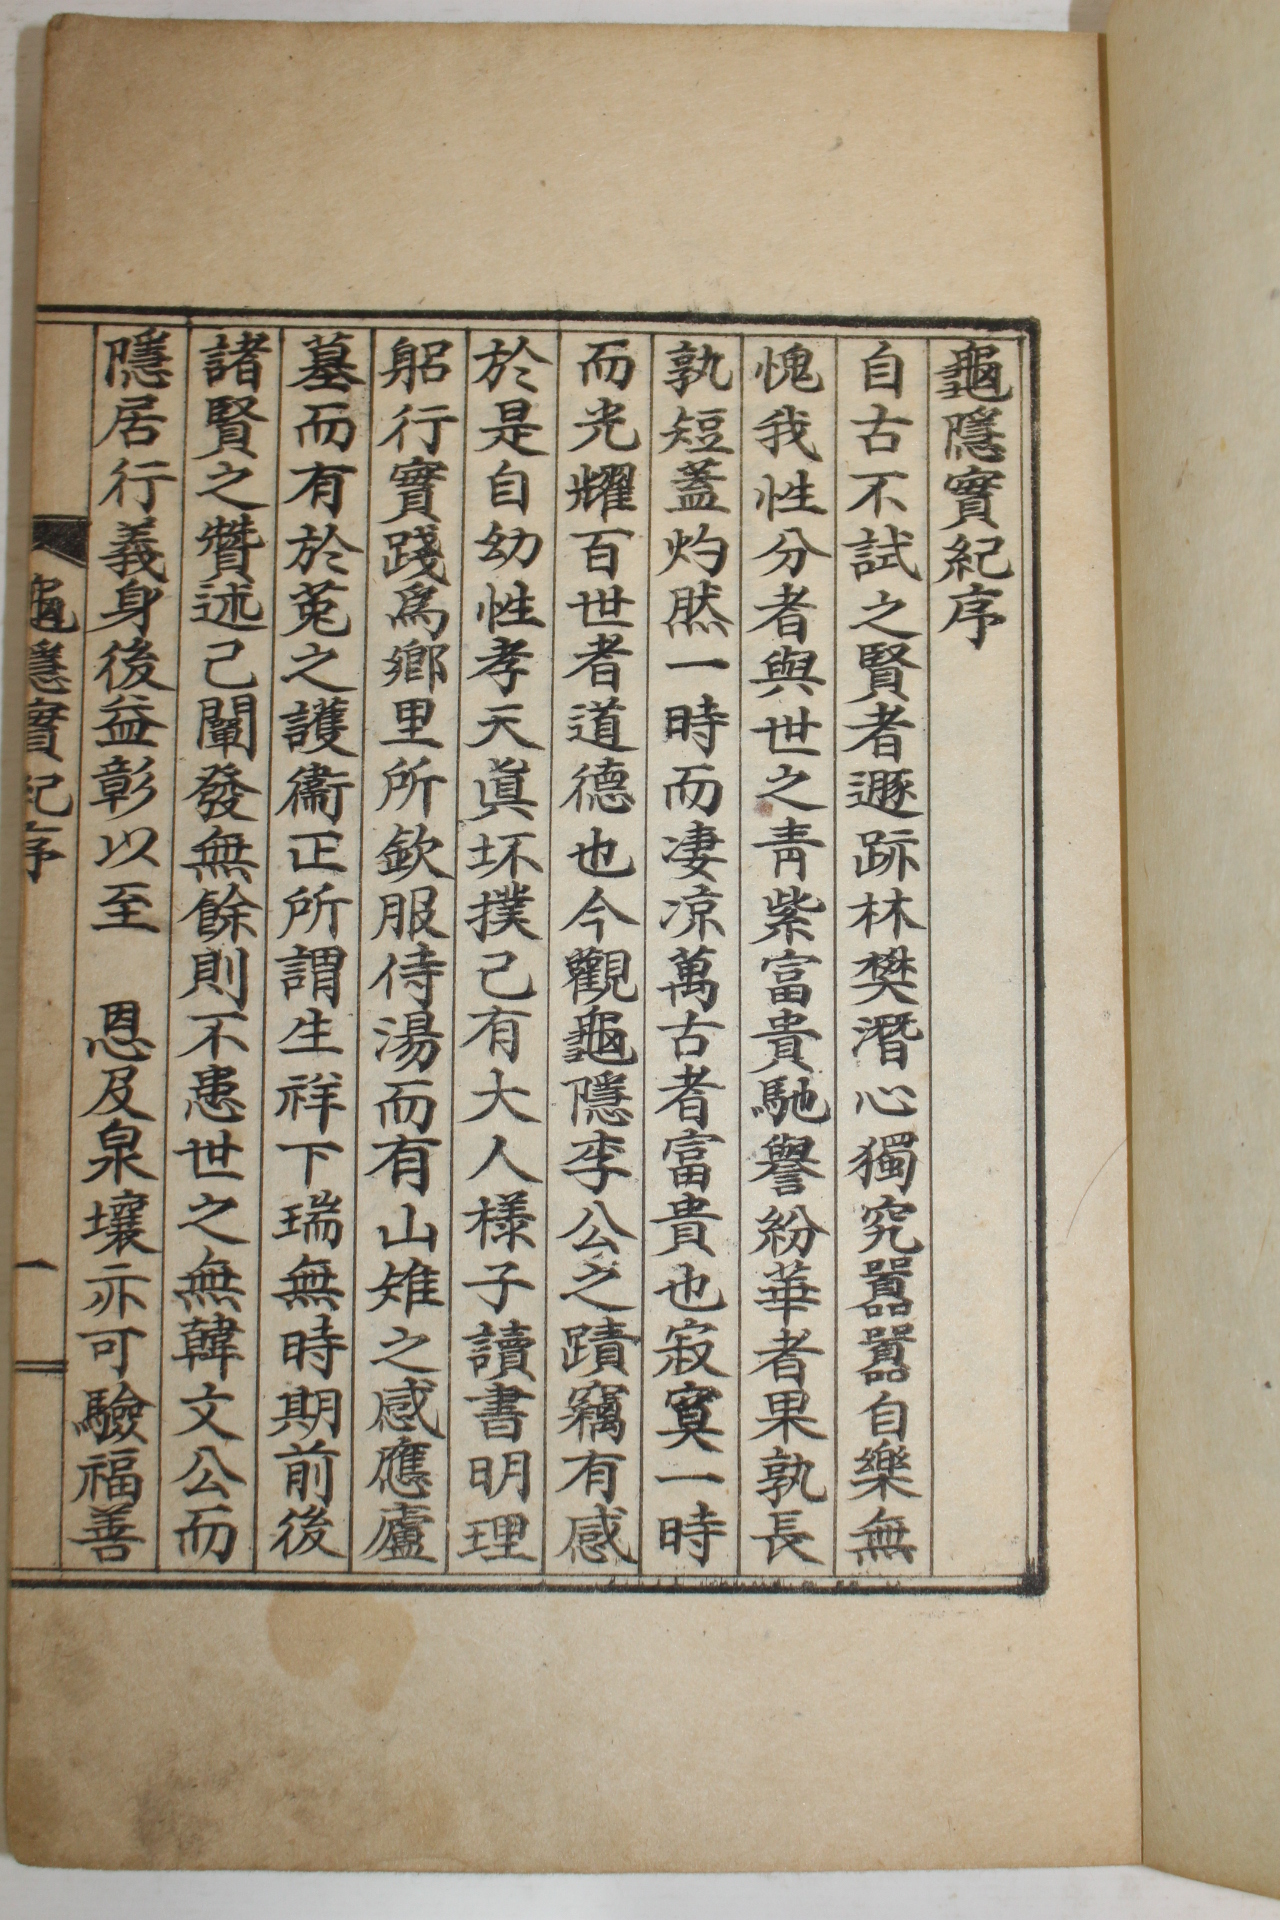 龜隱實紀序
自古不試之賢者遯跡林樊潛心獨究囂囂自樂無
愧我性分者與世之靑紫富貴馳譽紛華者果孰長
孰短蓋灼然一時而凄凉萬古者富貴也寂寞一時
而光耀百世者道德也今觀龜隱李公之蹟竊有感
於是自幼性孝天眞坯撲己有大人樣子讀書明理
躬行實踐爲鄕里所欽服侍湯而有山雉之感應廬
墓而有於菟之護衞正所謂生祥下瑞無時期前後
諸賢之贊述己闡發無餘則不患世之無韓文公而
隱居行義身後益彰以至　恩及泉壤亦可驗福善
龜隱實紀序
一